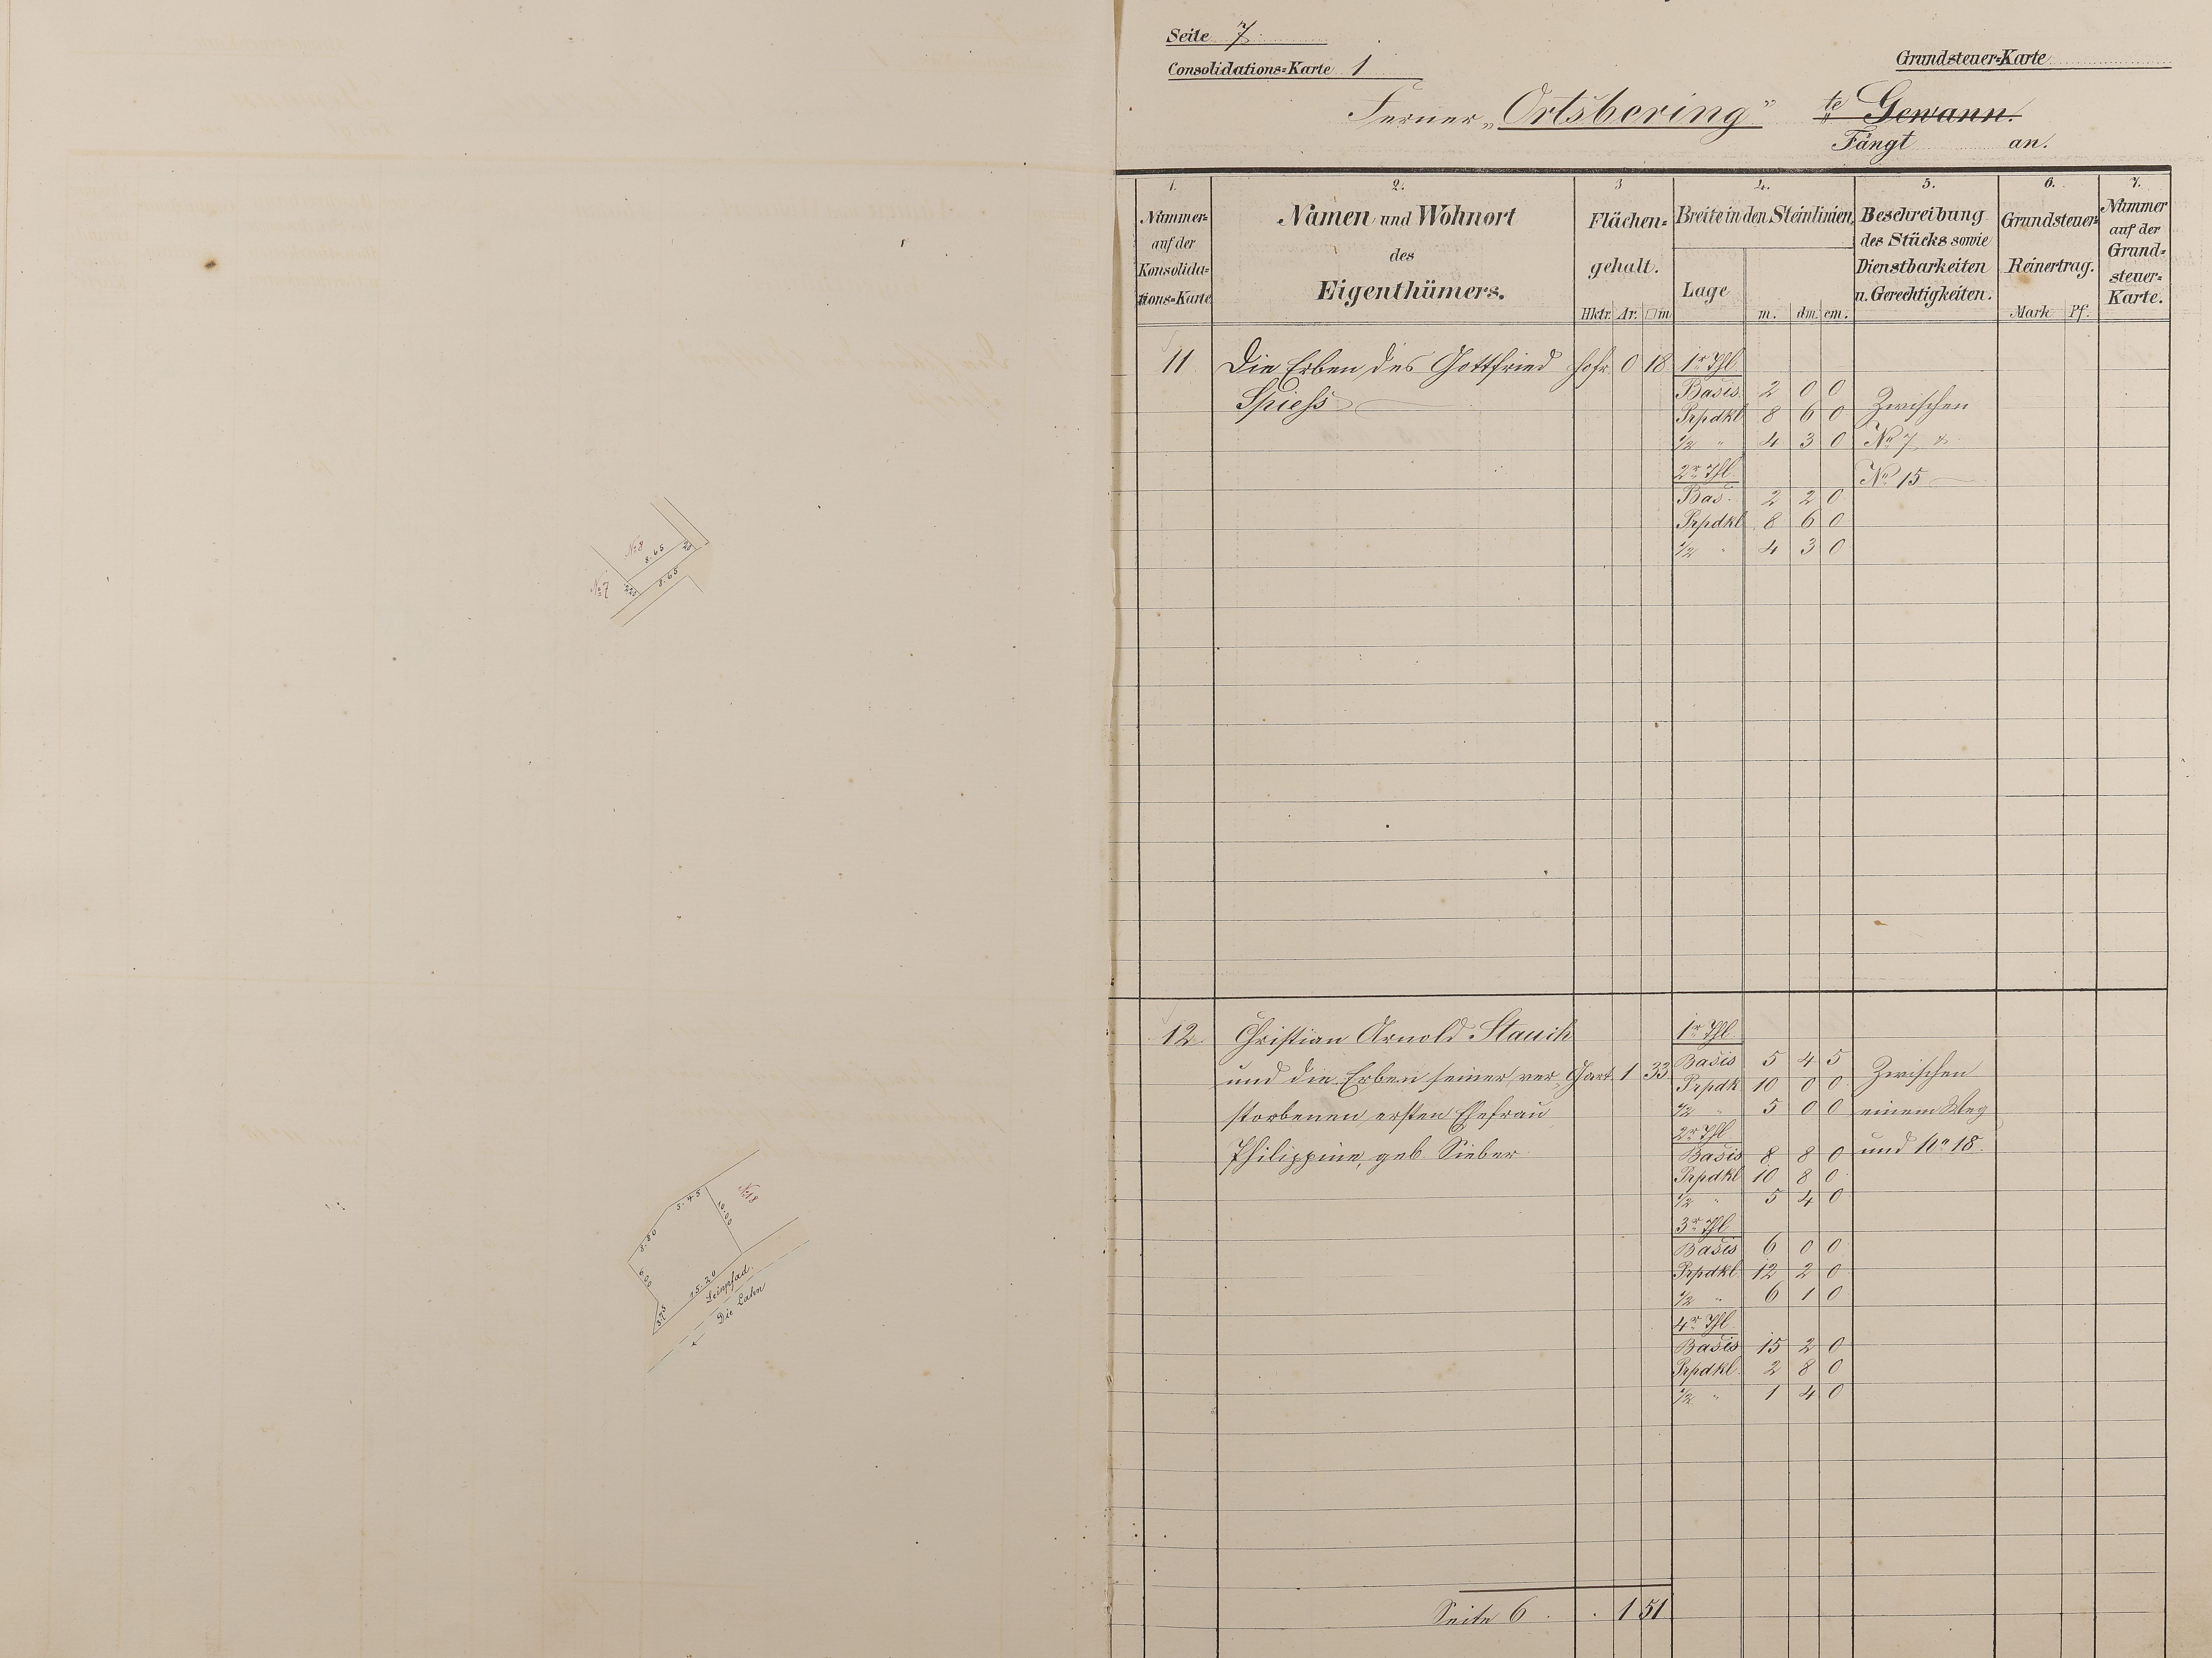 Seite 7
Consolidations=Karte 1
Grundsteuer=Karte
Ferner „Ortsbering" te Gewann.
Fängt an.
1. 2. 3 4. 5. 6. 7.
Nummer=
auf der
Konsolida=
tions=Karte
Namen und Wohnort
des
Eigenthümers.
Flächen=
gehalt.
Hktr. Ar. □m
Breite in den Steinlinien,
Lage
m. dm. cm.
Beschreibung
des Stücks sowie
Dienstbarkeiten
u. Gerechtigkeiten.
Grundsteuer=
Reinertrag.
Mark Pf.
Nummer
auf der
Grund=
steuer=
Karte.
11 Die Erben des Gottfried Hofr. 0 18 1r Thl.
Spiess Basis. 2 0 0 Zwischen
Prpdkl 8 6 0
1/2 " 4 3 0 No 7 &
2r Thl.
No 15
Bas. 2 2 0
Prpdkl 8 6 0
1/2 " 4 3 0
No 8
8.65
2.0
No 7
2.20
8.65
12 Christian Arnold Stauch 1r Thl.
und die Erben seiner ver= Gart. 1 33 Basis 5 4 5 Zwischen
Prpdk 10 0 0
storbenen ersten Ehefrau 1/2 " 5 0 0 einem Weg
2r Thl.
Philippine, geb. Sieber Basis 8 8 0 und No 18.
Prpdkl 10 8 0
1/2 " 5 4 0
3r Thl.
Basis 6 0 0
Prpdkl. 12 2 0
1/2 " 6 1 0
4r Thl.
Basis 15 2 0
Prpdkl. 2 8 0
1/2 " 1 4 0
5.45
No 18
10.00
8.80
6.00
15.20
Leinpfad.
Die Lahn
Seite 6 . . 1 51